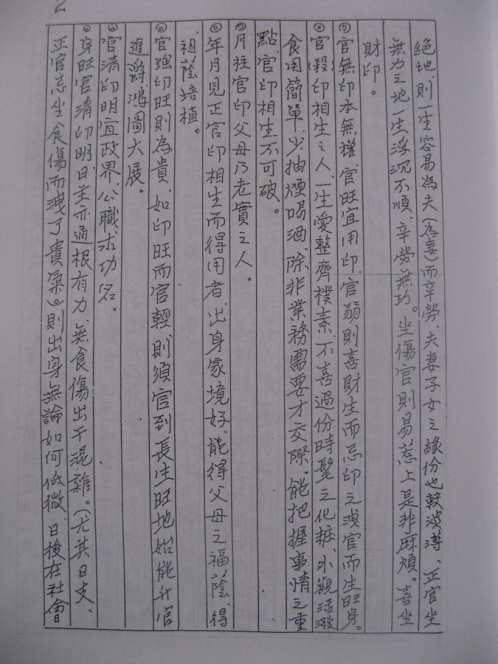 2
絕地，則一生容易為夫（為妻）而辛勞，夫妻子女之緣份也較淡薄。正官坐
無力之地一生浮沉不順，辛勞無功。坐傷官則易惹上是非麻煩。喜坐
財印。
官無印本無權，官旺宜用印。官弱則喜財生而忌印之洩官而生旺身。
官殺印相生之人，一生愛整齊樸素，不喜過份時髦之化粧，外觀活潑
食用簡單，少抽煙喝酒，除非業務需要才交際，能把握事情之重
點，官印相生不可破。
月柱官印父母乃老實之人。
年月見正官印相生而得用者，出身家境好，能得父母之福蔭，得
祖蔭培植。
官強印旺則為貴，如印旺而官輕，則須官到長生旺地，始能升官
進爵鴻圖大展。
官清印明宜政界、公職求功名。
身旺官清印明，日主亦通根有力，無食傷出干混雜。（尤其日支、
正官忌坐食傷而洩了貴氣。）則出身無論如何低微，日後在社會